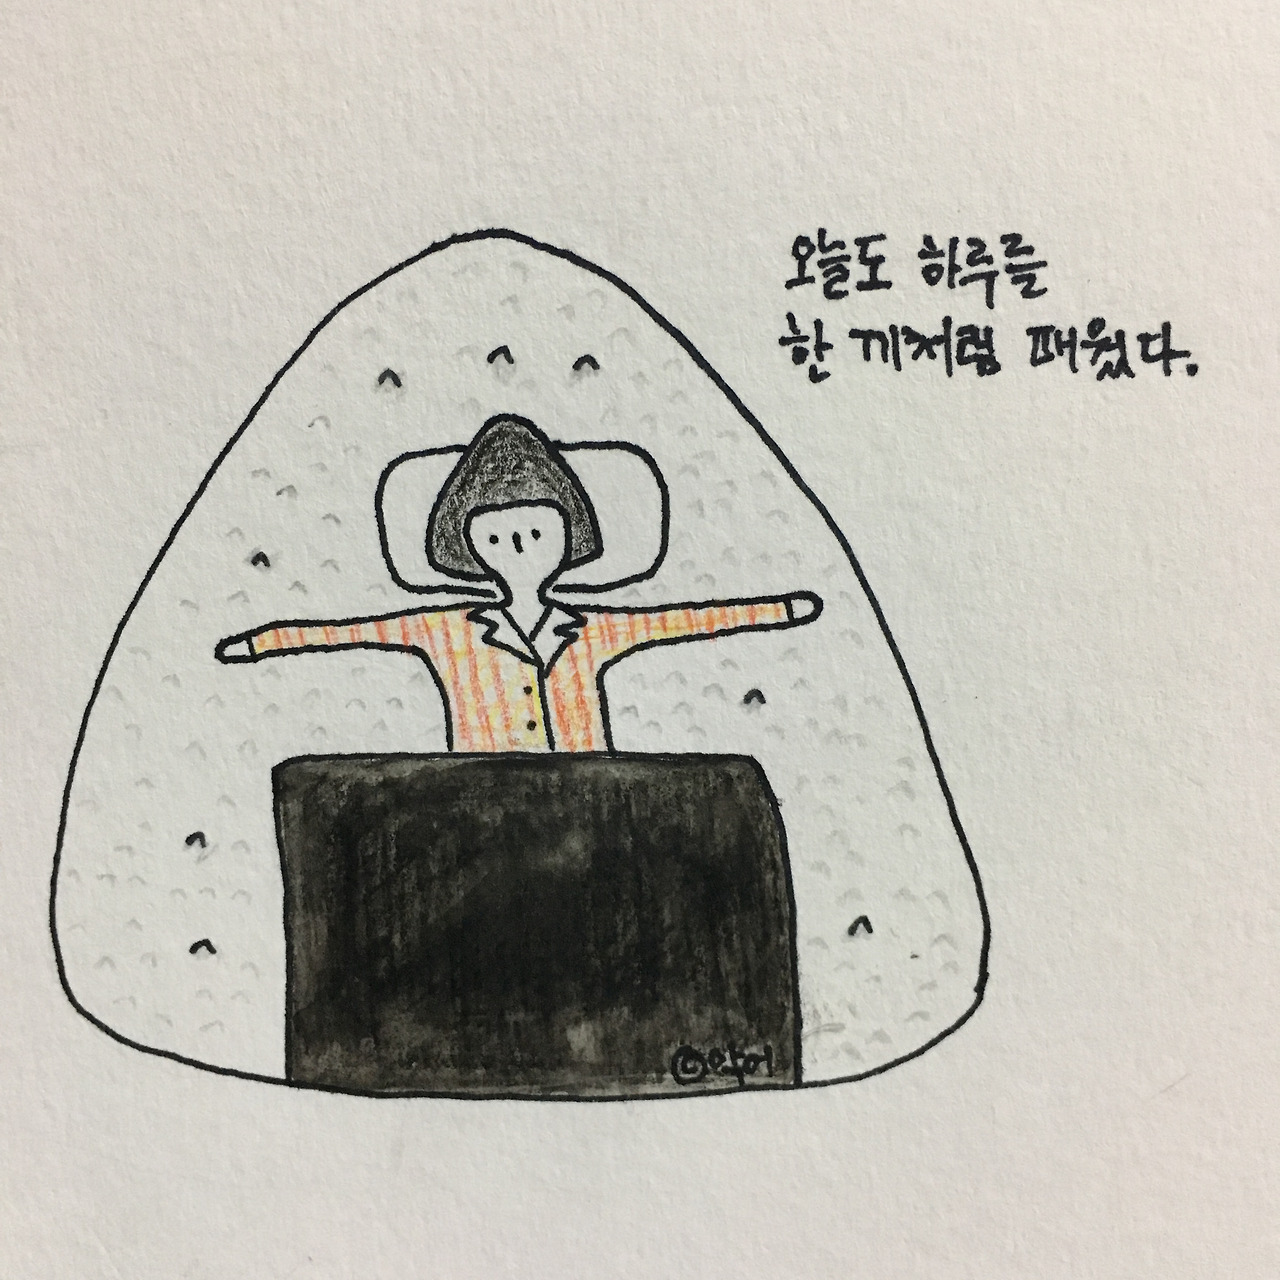 오늘도 하루를
한 끼처럼 때웠다.
©악어